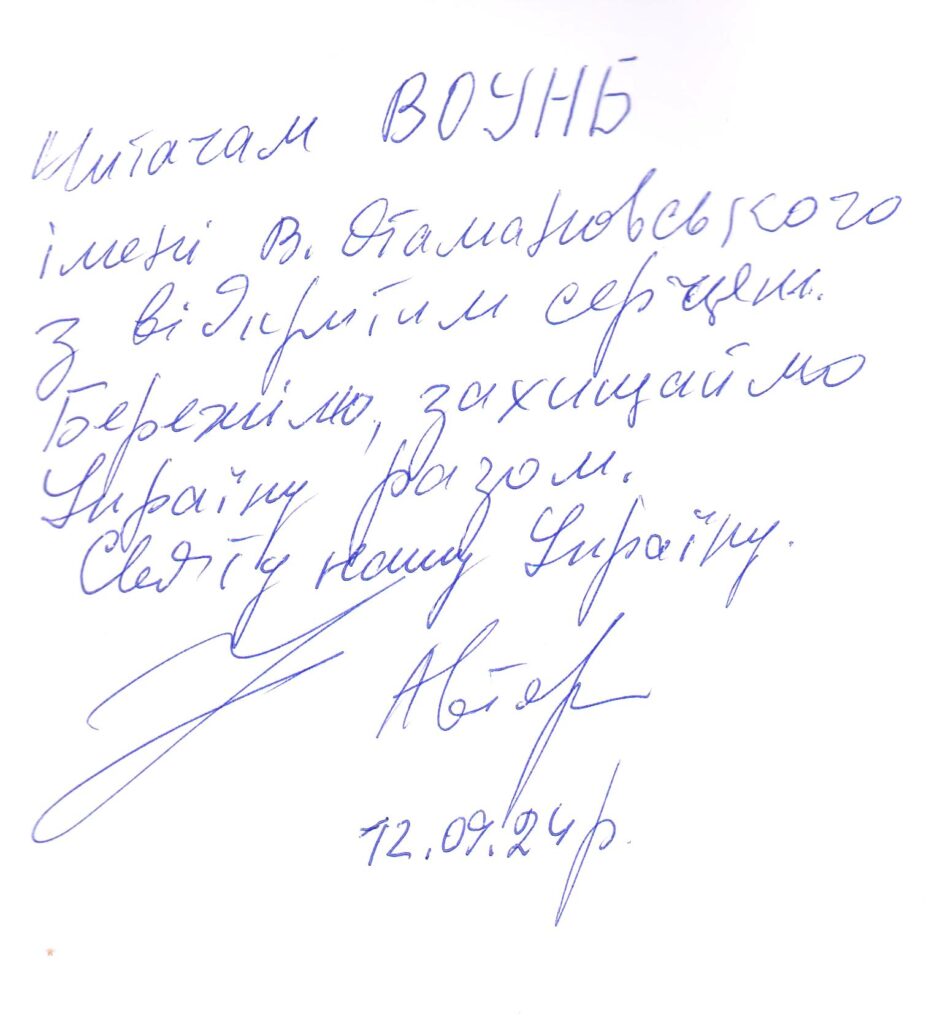 Читачам ВОУНБ
імені В. Отамановського
з відкритим серцем.
Бережімо, захищаймо
Україну разом.
Святу нашу Україну.
Автор
12.09.24р.